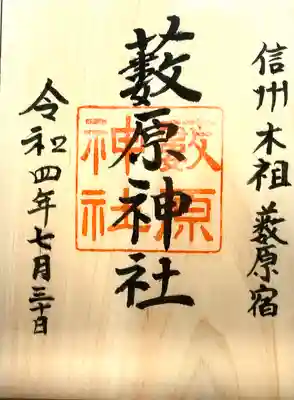 信州木祖薮原宿
藪原神社
藪原
神社
令和四年七月三十日